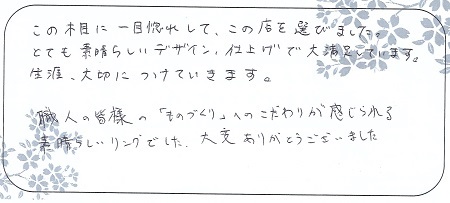 この木目に一目惚れして、この店を選びました。
とても素晴らしいデザイン、仕上げで大満足しています。
生涯、大切につけていきます。
職人の皆様の「ものづくり」へのこだわりが感じられる
素晴らしいリングでした。大変ありがとうございました